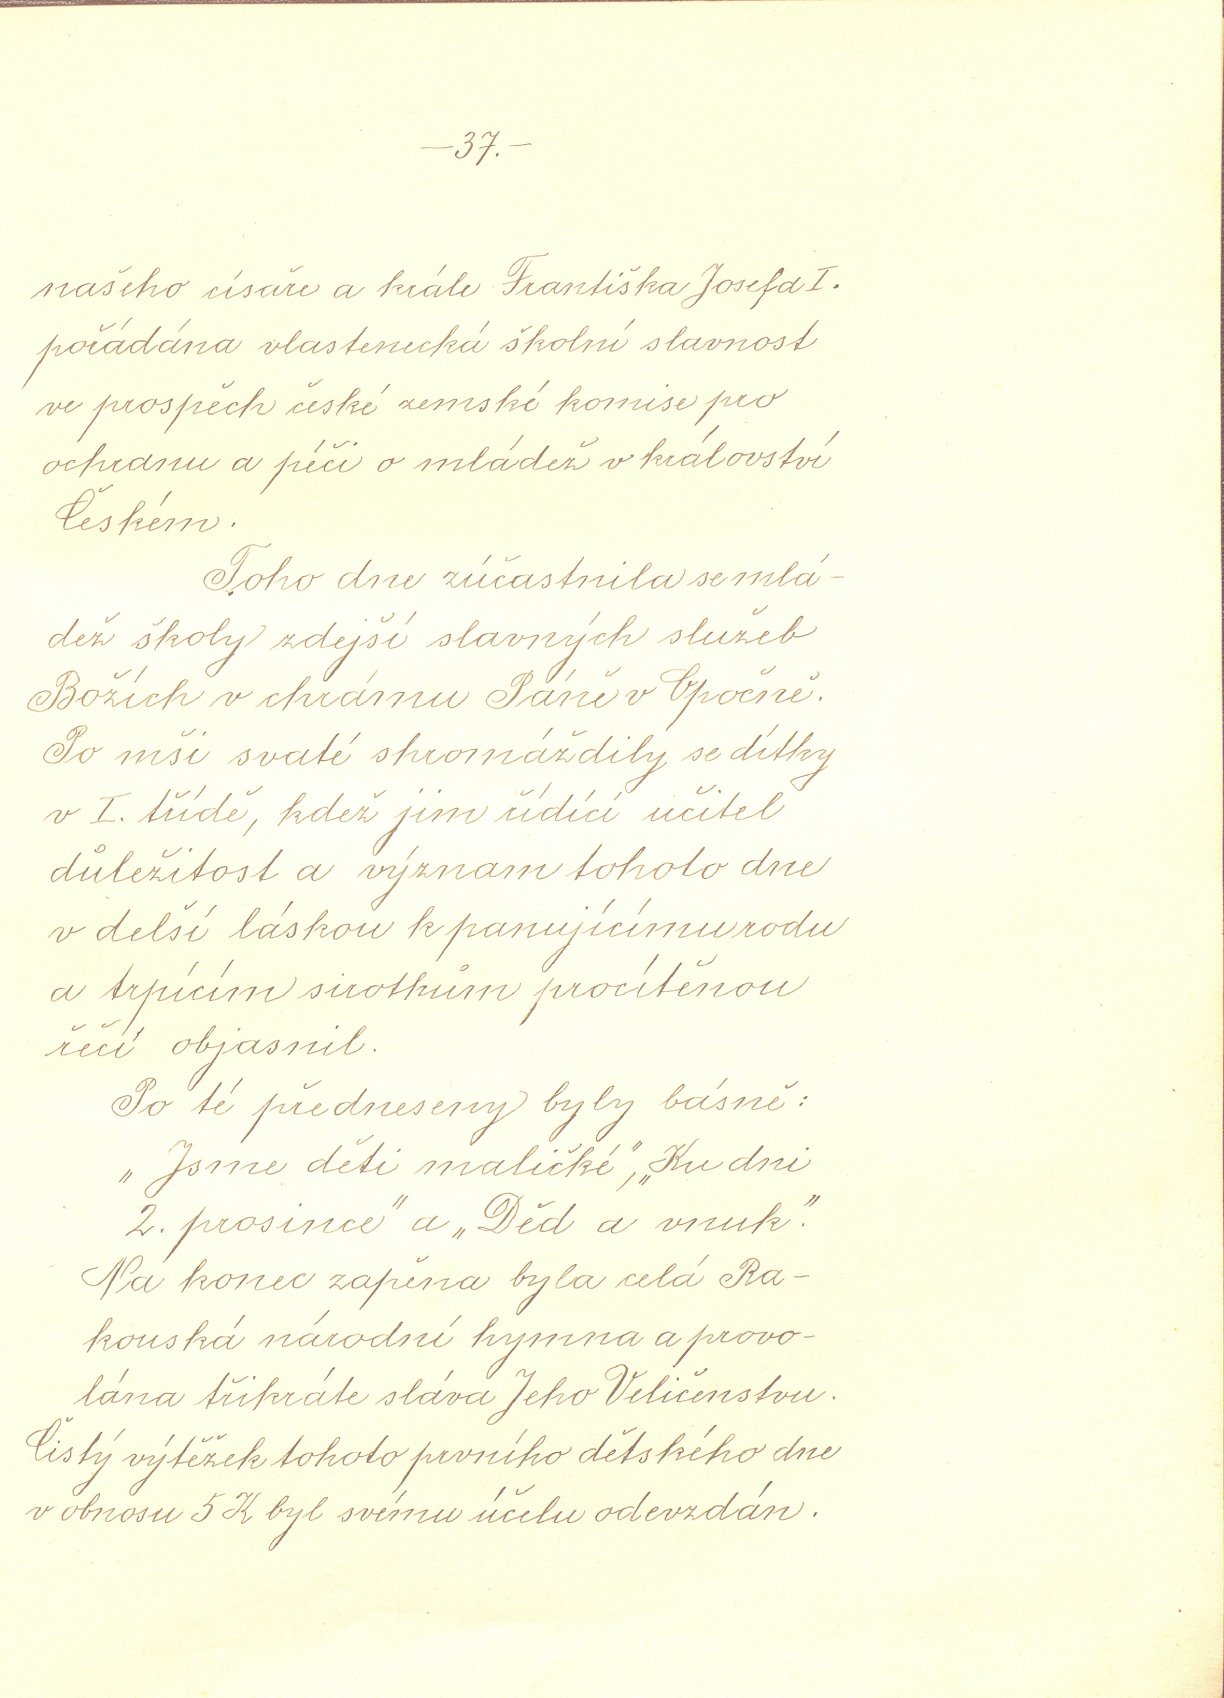 —37.—
našeho císaře a krále Františka Josefa I.
pořádána vlastenecká školní slavnost
ve prospěch české zemské komise pro
ochranu a péči o mládež v království
Českém.
Toho dne zúčastnila se mlá-
dež školy zdejší slavných služeb
Božích v chrámu Páně v Opočně.
Po mši svaté shromáždily se dítky
v I. třídě, kdež jim řídící učitel
důležitost a význam tohoto dne
v delší láskou k panujícímu rodu
a trpícím sirotkům procítěnou
řečí objasnil.
Po té předneseny byly básně:
„Jsme děti maličké", „Ku dni
2. prosince" a „Děd a vnuk".
Na konec zapěna byla celá Ra-
kouská národní hymna a provo-
lána třikráte sláva Jeho Veličenstvu.
Čistý výtěžek tohoto prvního dětského dne
v obnosu 5 K byl svému účelu odevzdán.